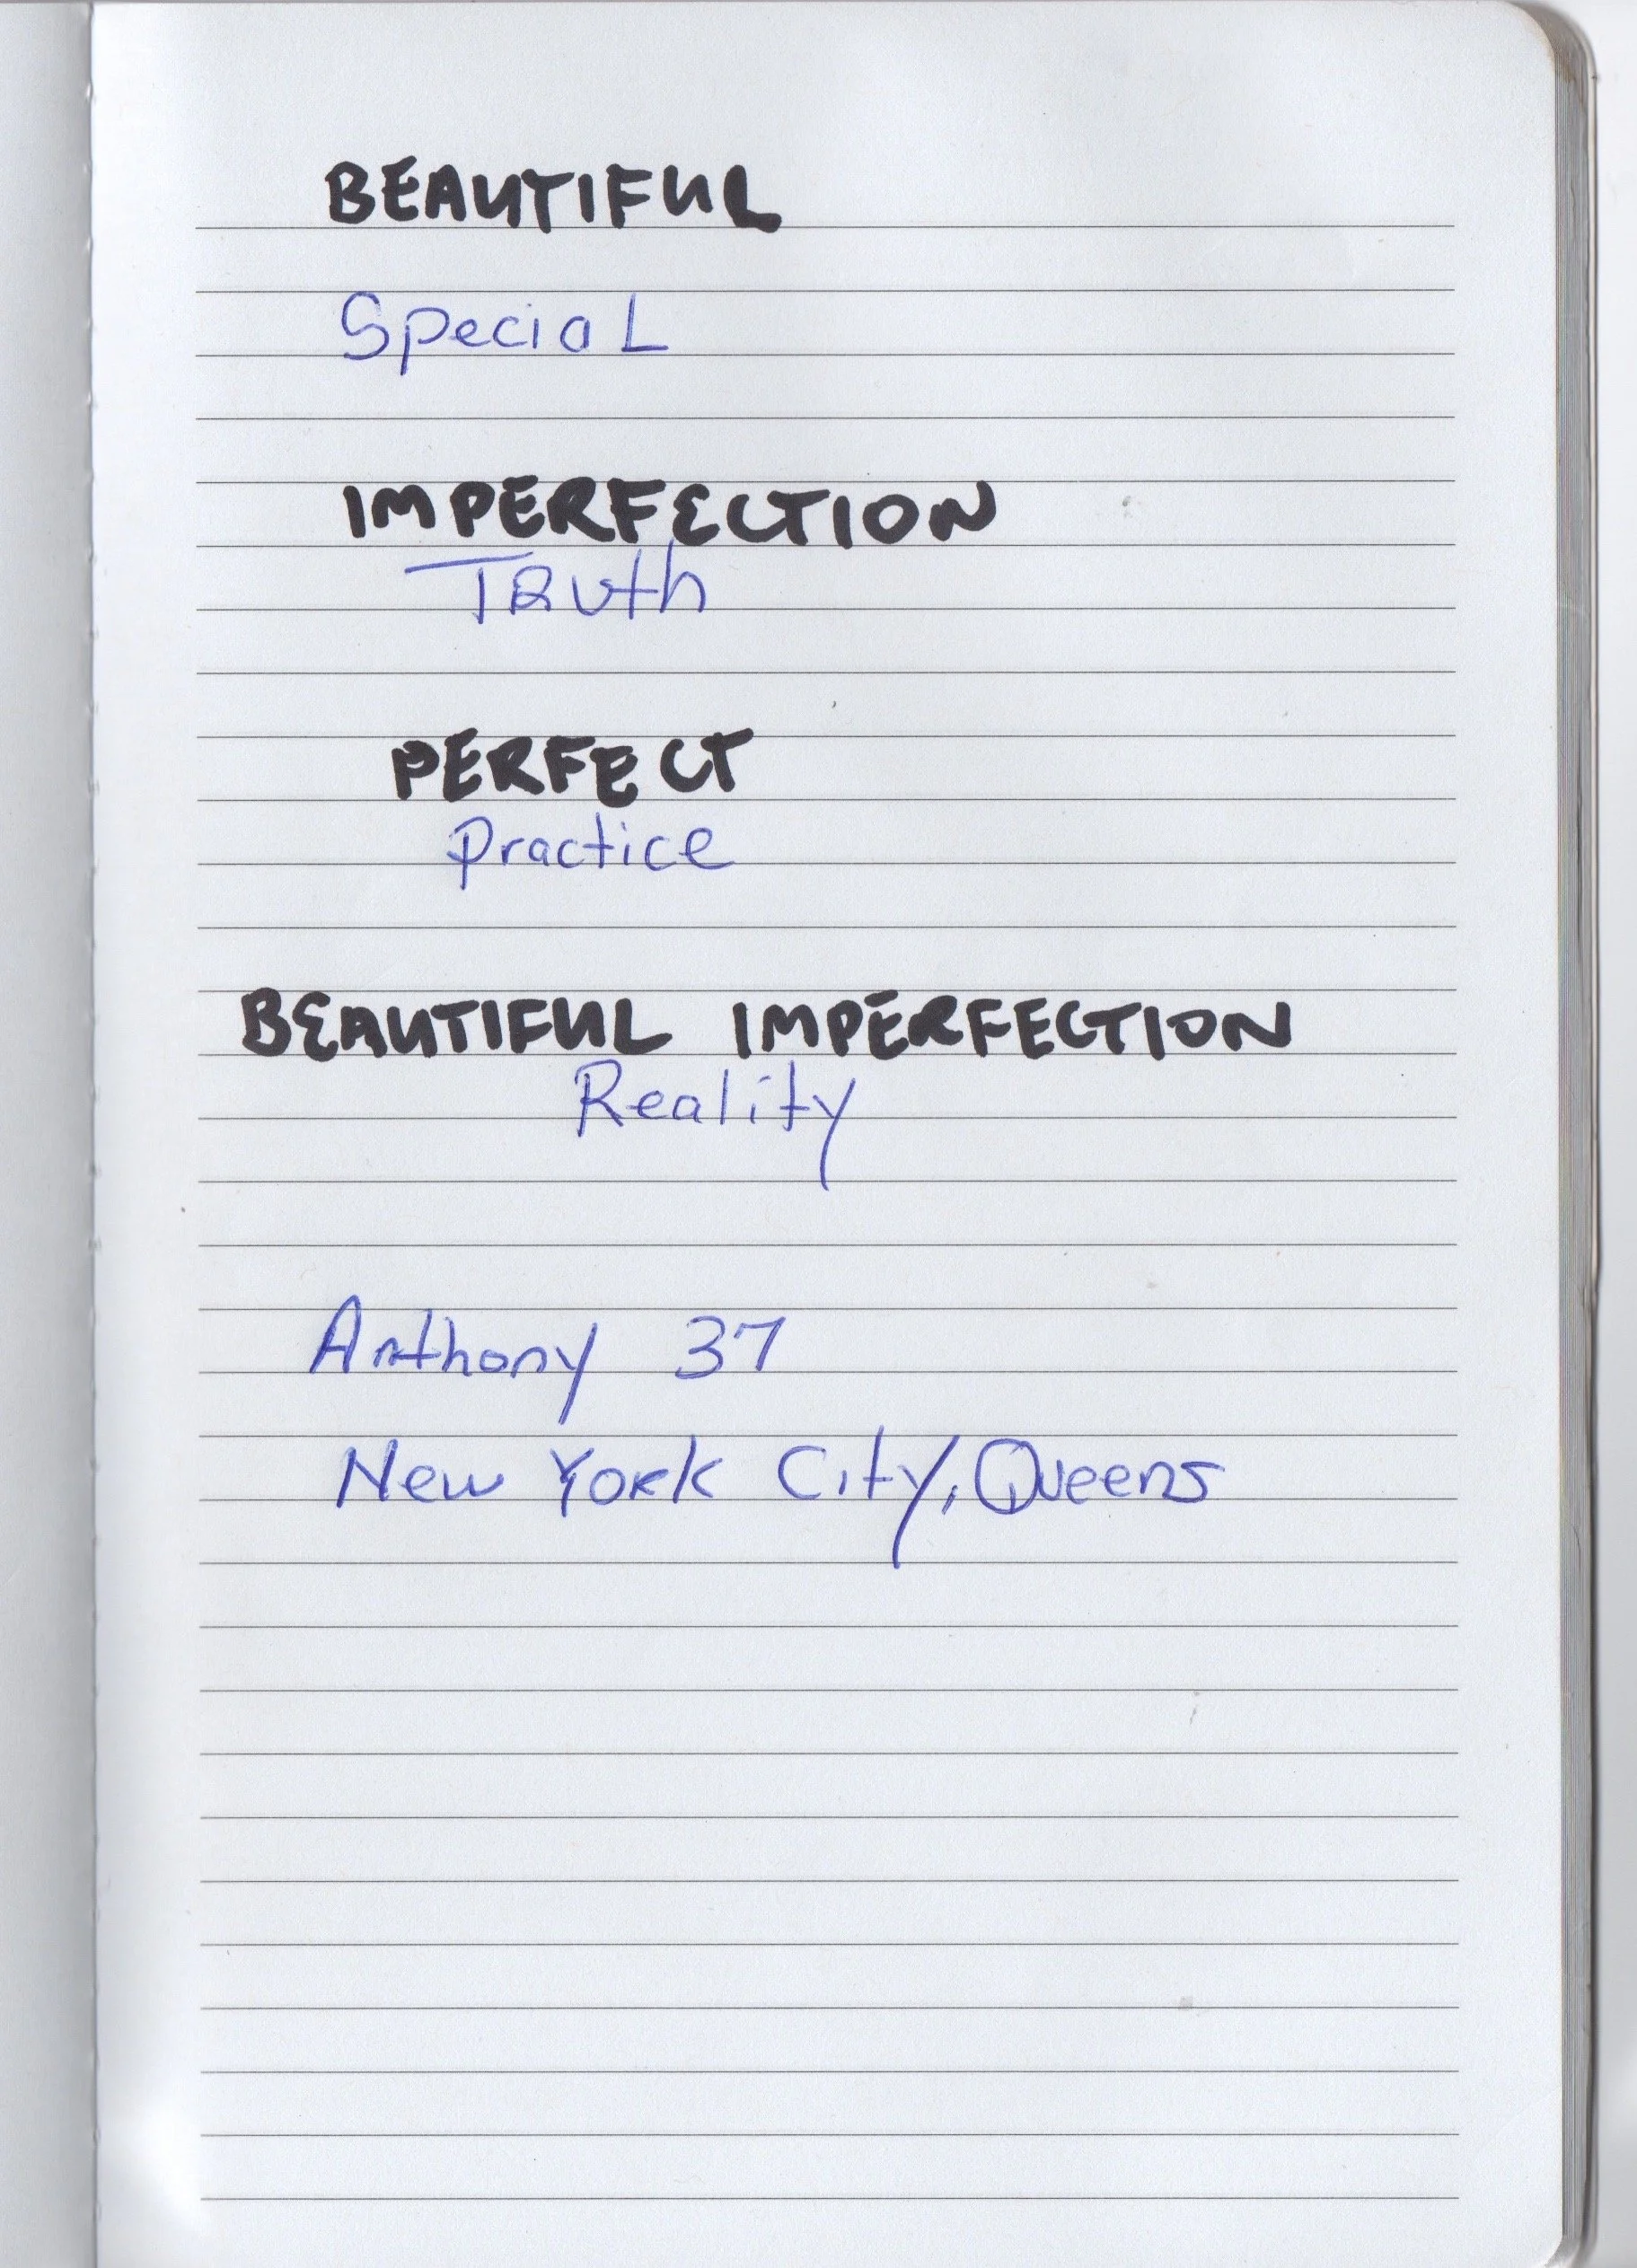 BEAUTIFUL
Special
IMPERFECTION
Truth
PERFECT
Practice
BEAUTIFUL IMPERFECTION
Reality
Anthony 37
New York City, Queens